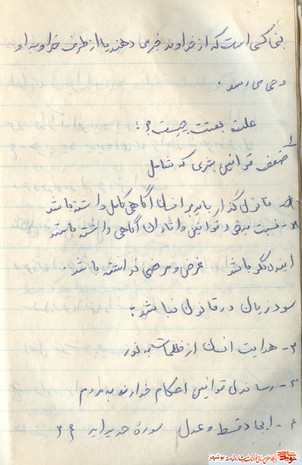 نبی کسی است که از خداوند خبر می دهند یا از طرف خداوند او
وحی می رسد.
علت بعثت چیست؟:
۱ ضعف قوانین بشری که شامل
قانون گذار باید بر انسان آگاهی کامل داشته باشد
نسبت به قوانین و اثار آن آگاهی داشته باشد
غرض و مرضی نداشته باشد.
سود و زیان در قانون نباشد:
۲- هدایت انسان از ظلمات به نور
۳- رساندن قوانین احکام خداوند به مردم
۴- ایجاد قسط و عدل سوره حدید آیه